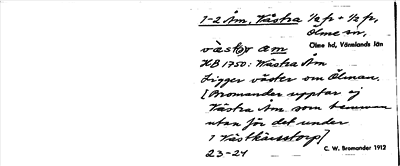 1-2 Åm, Västra 1/2 fr + 1/2 fr,
Ölme sn,
Ölme hd, Värmlands län
västər åm
KB 1750: Wästra Åm
Ligger väster om Ölman.
[Bromander upptar ej
Västra Åm som hemman
utan för det under
1 Västkärrstorp]
C. W. Bromander 1912
23-24